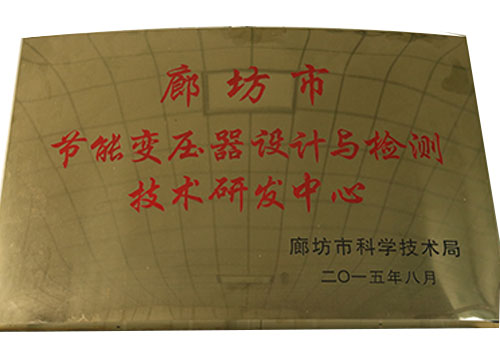 廊坊市
节能变压器设计与检测
技术研发中心
廊坊市科学技术局
二〇一五年八月